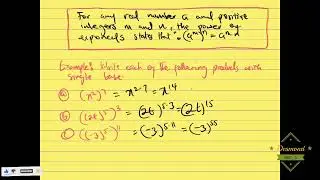 For any real number a and positive
integers m and n, the power of
exponents states that : (aᵐ)ⁿ = aᵐ
Example: Write each of the following products with
single base.
a) (x²)⁷ = x²·⁷ = x¹⁴
b) ((2t)⁵)³ = (2t)⁵·³ = (2t)¹⁵
c) ((-3)⁵)¹¹ = (-3)⁵·¹¹ = (-3)⁵⁵
Desmond